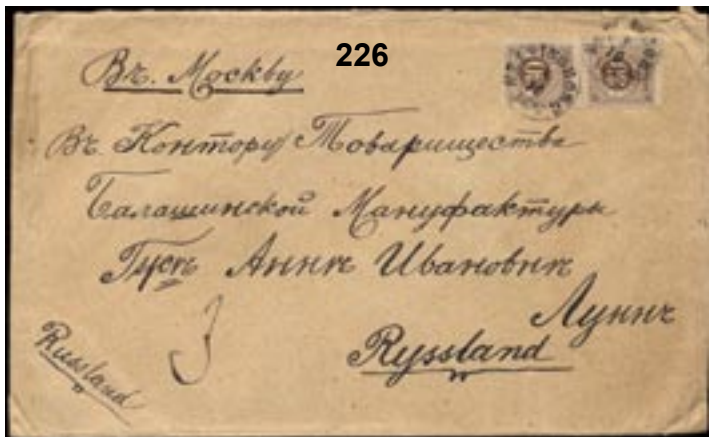 226
Въ. Москву
Въ Контору Товарищества
Балашинской Мануфактуры
Аннѣ Ивановнѣ
Луннъ
Ryssland
Russland